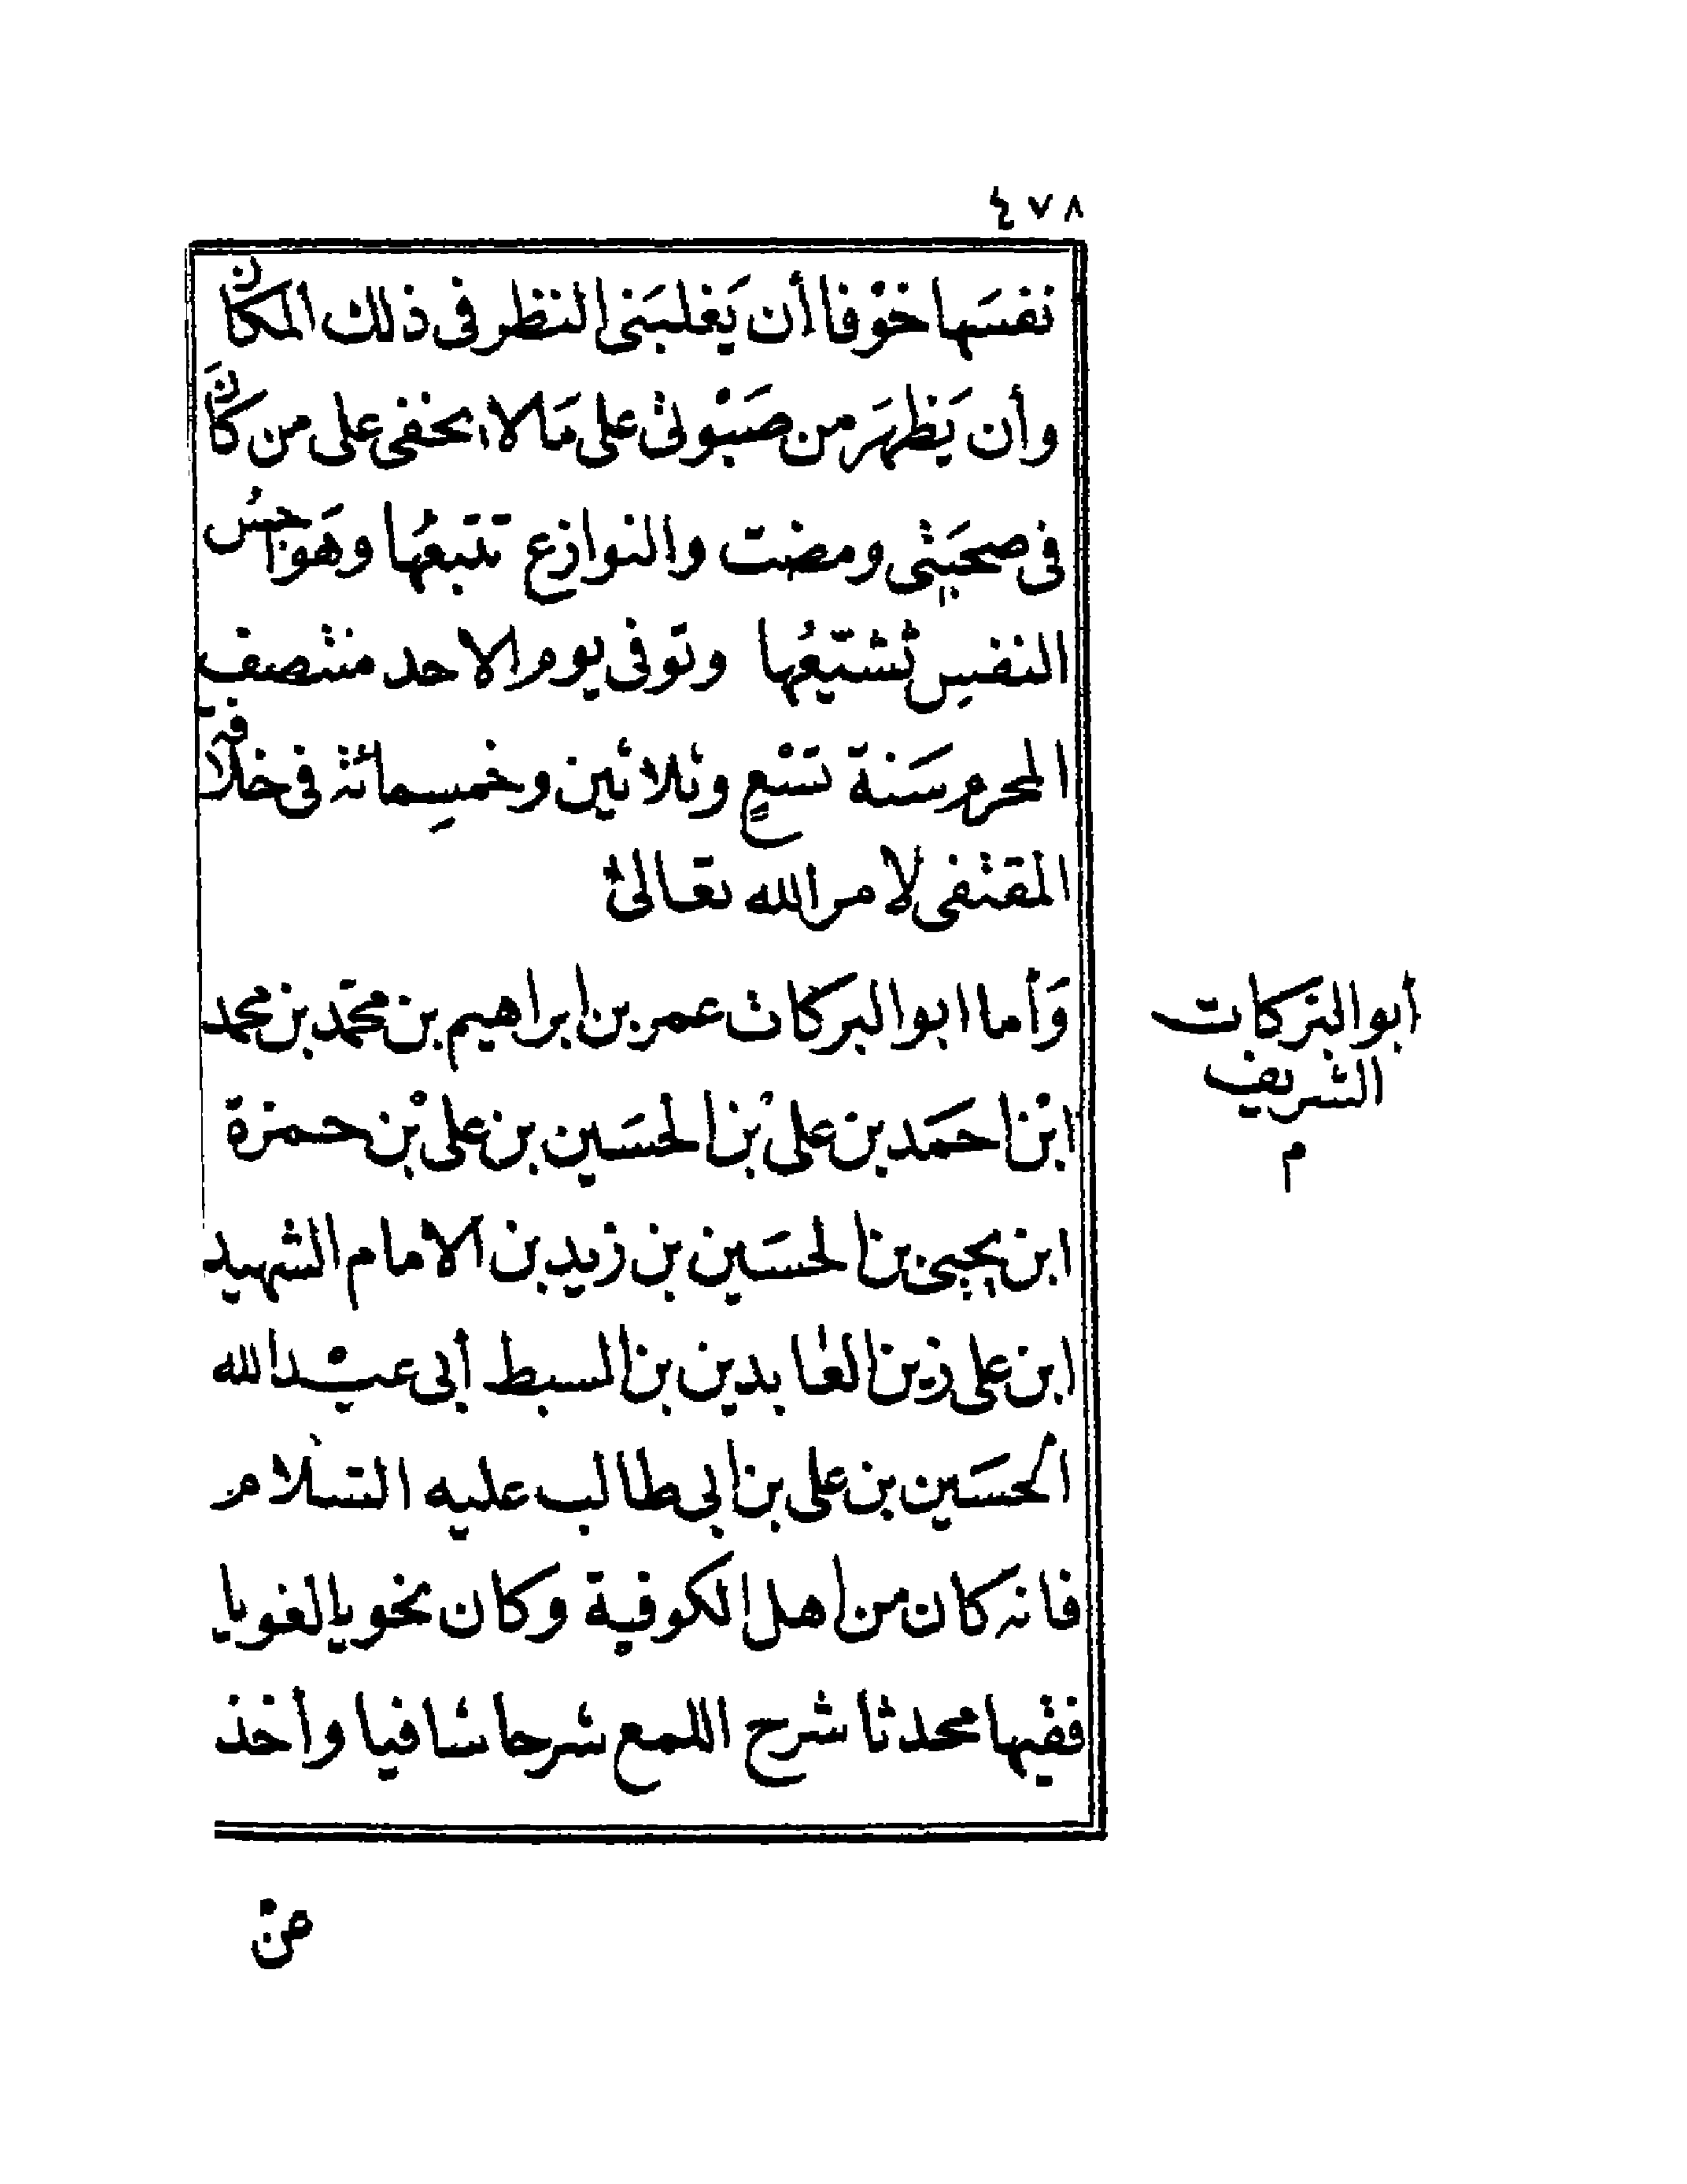 ٤٧٨
نفسَها خوْفا أن يَغلبَنى النظر فى ذلك المكان
وأن يَظهَر من صَبْوتى على مَا لا يخفى على من كانَ
فى صحبَتِى ومضت والنوازع تتبعُها وهَواجسُ
النفسِ تُشَيِّعُها وتوفى يوم الاحد منتصف
المحرم سَنة تسْعٍ وثلاثين وخمسِمائة فى خلافة
المقتفى لامر الله تعالى
وَأما ابو البركات عمر بن ابراهيم بن محمّد بن محمد
ابْن احمَد بن على بْن الحسَين بن على بْن حمزة
ابن يحيى بن الحسَين بن زيد بن الامام الشهيد
ابن على زين العابدين بن السبط أبى عبْد الله
الحسَين بن على بن ابى طالب عليه السّلام
فانه كان من اهل الكوفية وكان نحويا لغويا
فقيها محدثا شرح اللمع شرحا شافيا وأخذ
أبو البَركات
الشريف
م
منْ